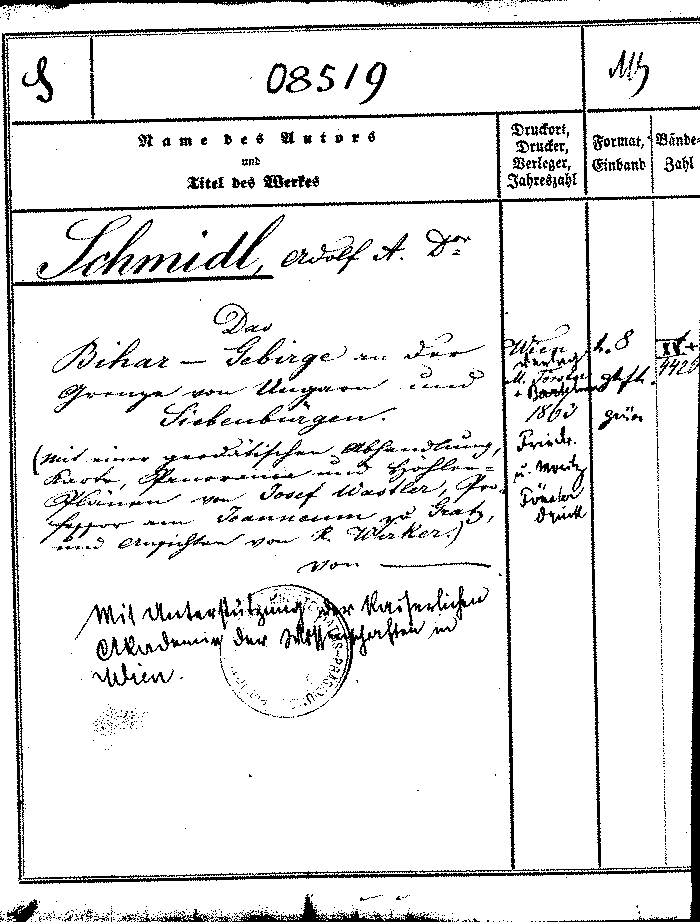 S
08519
Name des Autors
und
Titel des Werkes
Druckort,
Drucker,
Verleger,
Jahreszahl
Format,
Einband
Bände-
Zahl
Schmidl, Adolf A. Dor
Das
Bihar – Gebirge an der
Grenze von Ungarn und
Siebenbürgen.
(Mit einer geodätischen Abhandlung,
Karte, Panorama und Höhlen=
Plänen von Josef Wastler, Pro-
fessor am Joanneum zu Gratz,
und Ansichten von R. Wirker.)
von
Mit Unterstützung der Kaiserlichen
Akademie der Wissenschaften in
Wien.
Wien
Verlag
1863
Friedr.
u. Moritz
Förster
Druck
8
grün
4426